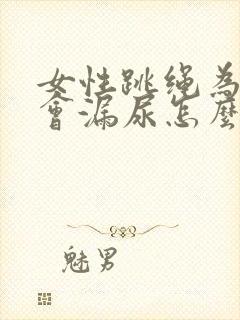 女性跳绳為
會漏尿怎麼
魅男